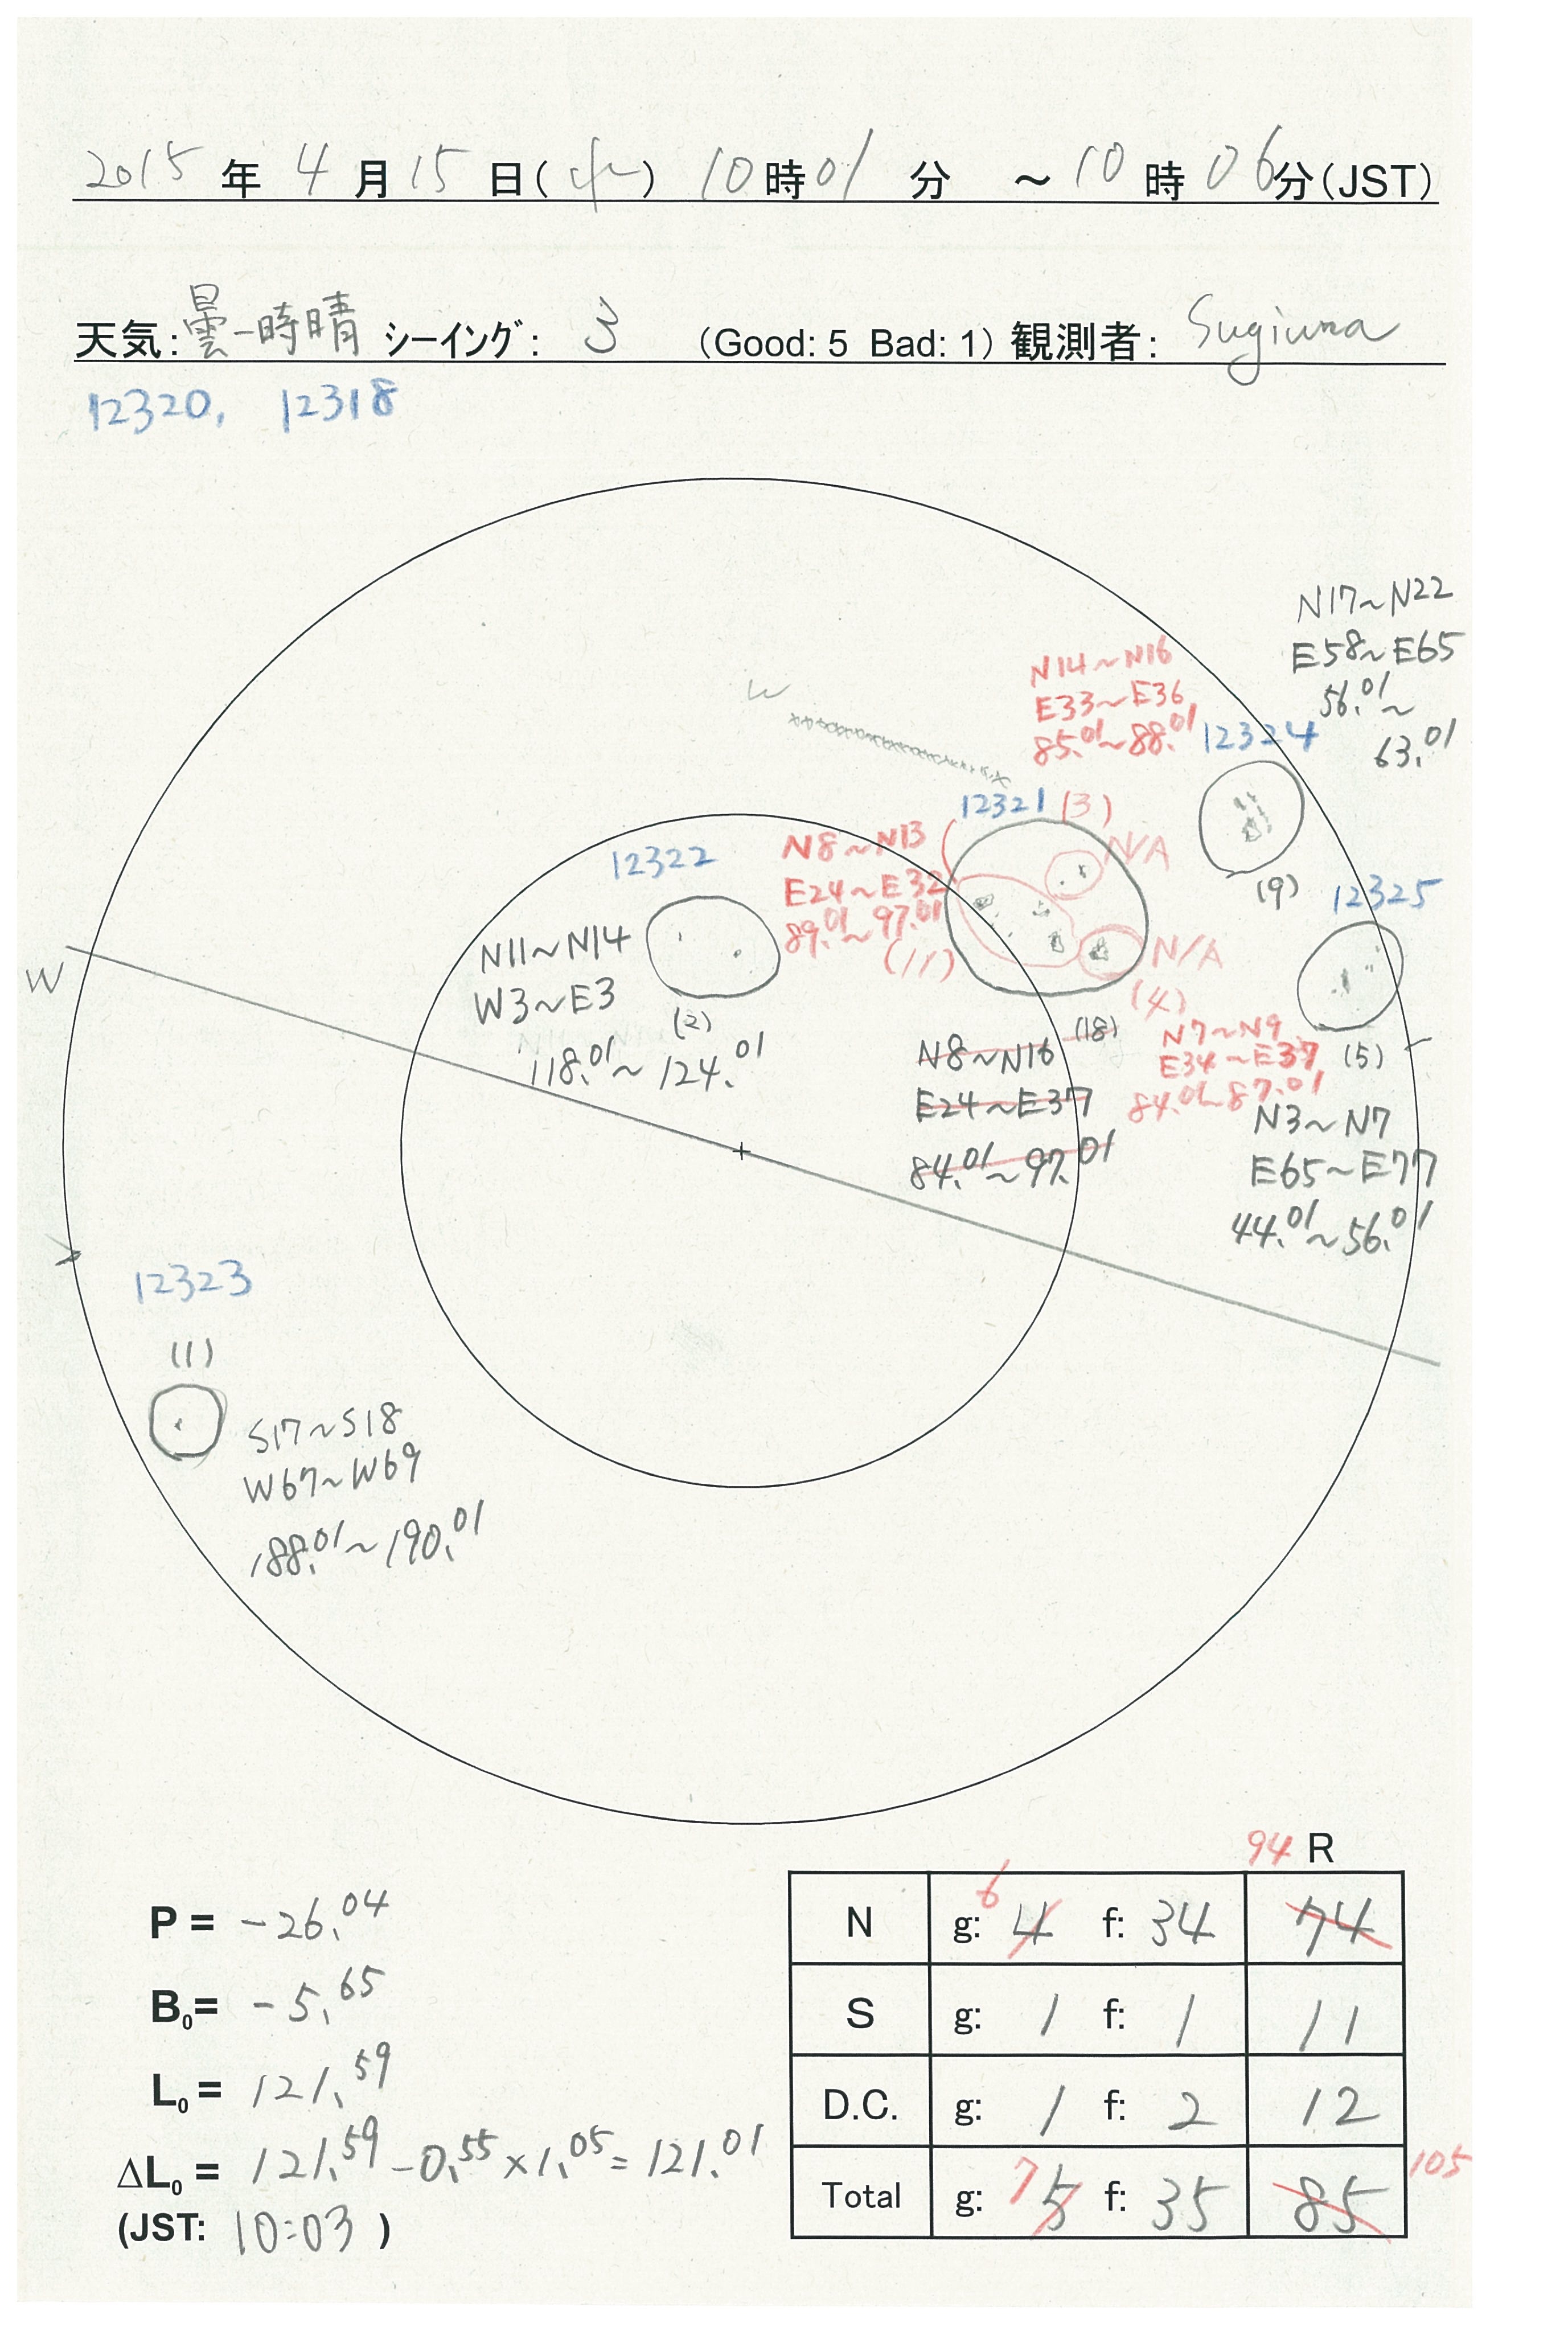 2015年4月15日(水) 10時01分 ～10時06分(JST)
天気:曇一時晴 シーイング: 3 (Good: 5 Bad: 1) 観測者: Sugiura
12320, 12318
N17~N22
E58~E65
56.01~
63.01
N14~N16
E33~E36
85.01~88.01
12324
W
12321 (3)
N8~N13
N/A
12322
E24~E32
(9)
12325
89.01~97.01
(11)
N/A
N11~N14
W
W3~E3
(4)
(2)
(18)
N7~N9
118.01~124.01
N8~N16
E34~E37
(5)
E24~E37
84.01~87.01
N3~N7
84.01~97.01
E65~E77
44.01~56.01
12323
(1)
S17~S18
W67~W69
188.01~190.01
94 R
P = -26.04
N g: 6 4 f: 34 74
B0= -5.65
S g: 1 f: 1 11
L0 = 121.59
D.C. g: 1 f: 2 12
ΔL0 = 121.59 - 0.55 × 1.05 = 121.01
Total g: 7 5 f: 35 85 105
(JST: 10:03 )